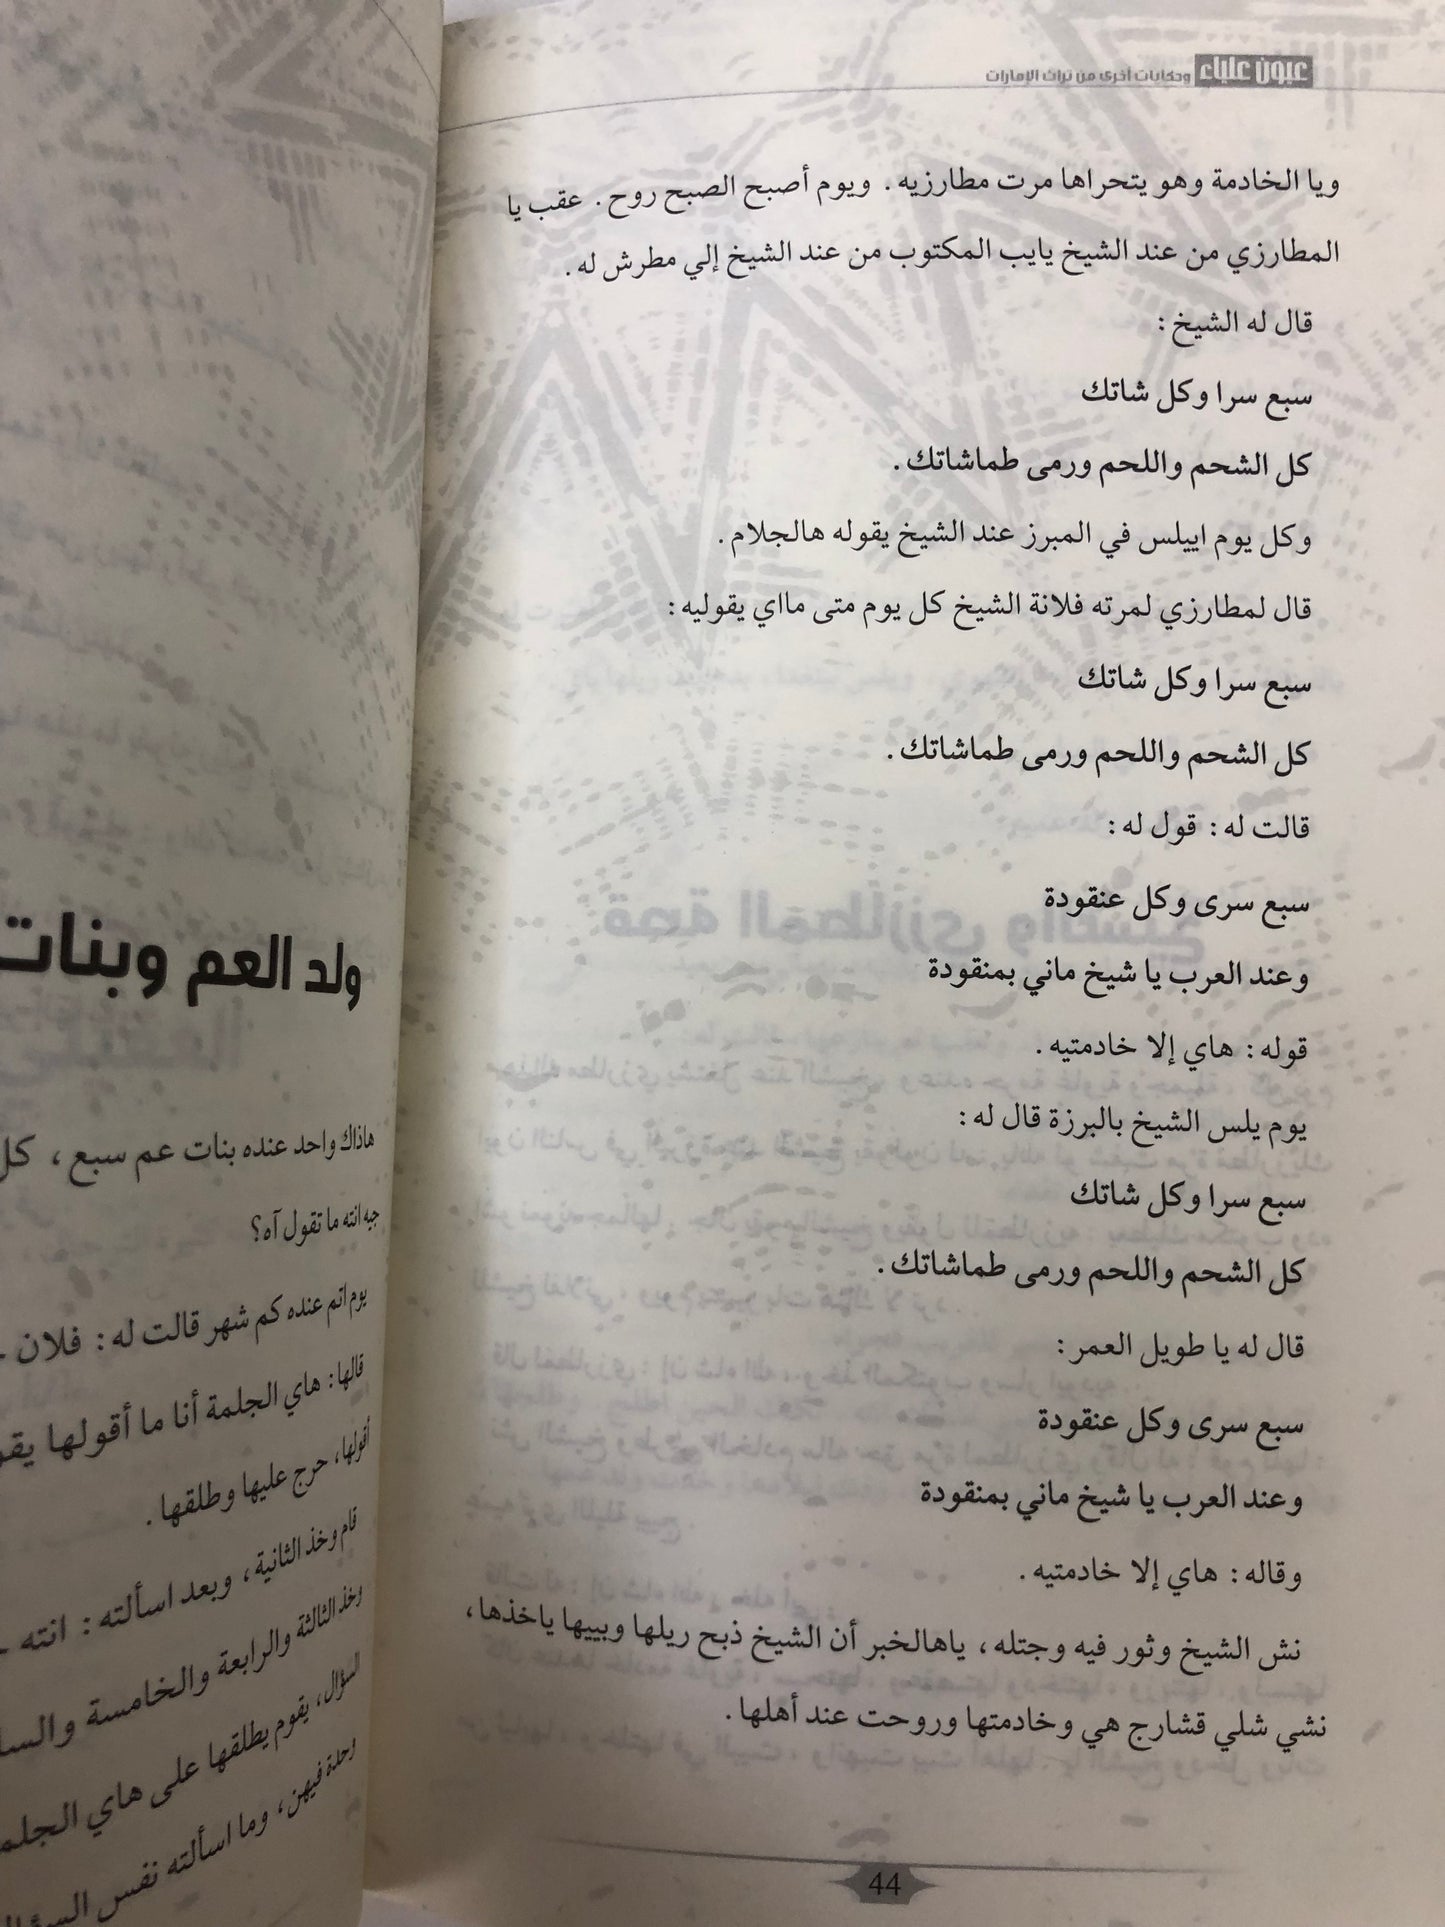 عيون علياء وحكايات أخرى من تراث الإمارات
ويا الخادمة وهو يتحراها مرت مطارزيه. ويوم أصبح الصبح روح. عقب يا
المطارزي من عند الشيخ يايب المكتوب من عند الشيخ إلي مطرش له.
قال له الشيخ:
سبع سرا وكل شاتك
كل الشحم واللحم ورمى طماشاتك.
وكل يوم اييلس في المبرز عند الشيخ يقوله هالجلام.
قال لمطارزي لمرته فلانة الشيخ كل يوم متى مااي يقوليه:
سبع سرا وكل شاتك
كل الشحم واللحم ورمى طماشاتك.
قالت له: قول له:
سبع سرى وكل عنقودة
وعند العرب يا شيخ ماني بمنقودة
قوله: هاي إلا خادمتيه.
يوم يلس الشيخ بالبرزة قال له:
سبع سرا وكل شاتك
كل الشحم واللحم ورمى طماشاتك.
قال له يا طويل العمر:
سبع سرى وكل عنقودة
وعند العرب يا شيخ ماني بمنقودة
وقاله: هاي إلا خادمتيه.
نش الشيخ وثور فيه وجتله، ياهالخبر أن الشيخ ذبح ريلها وبييها ياخذها،
نشي شلي قشارج هي وخادمتها وروحت عند أهلها.
44
ولد العم وبنات
هاذاك واحد عنده بنات عم سبع، كل
جيه انته ما تقول آه؟
يوم اتم عنده كم شهر قالت له: فلان
قالها: هاي الجلمة أنا ما أقولها
أقولها، حرج عليها وطلقها.
قام وخذ الثانية، وبعد اسألته: انته
وخذ الثالثة والرابعة والخامسة
السؤال، يقوم يطلقها على هاي
وحدة فيهن، وما اسألته نفس